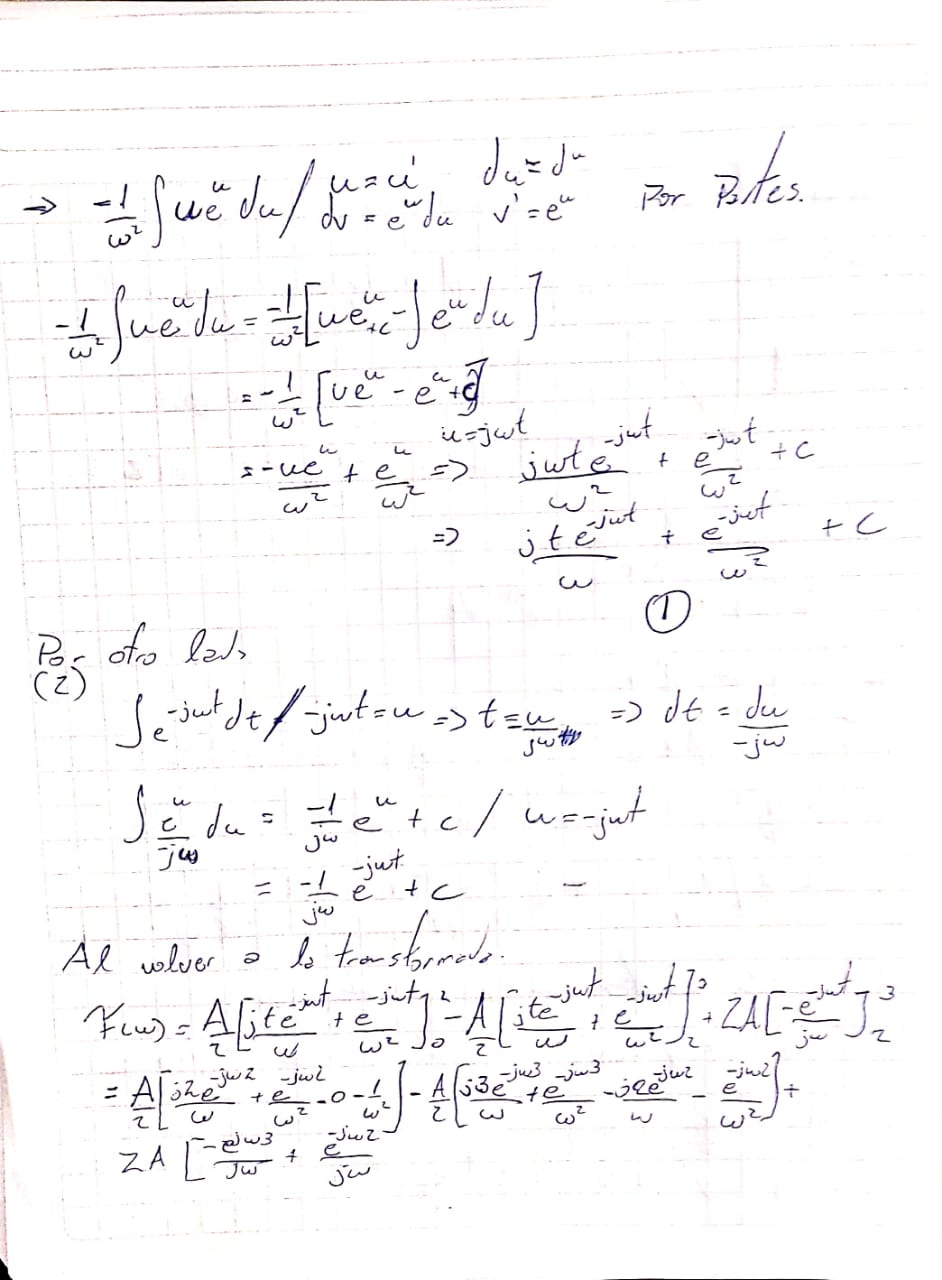 ⇒ -1/ω² ∫ue^u du / u=u du=du
dv=e^u du v=e^u Por Partes.
-1/ω² ∫ue^u du = -1/ω² [ue^u +c - ∫e^u du]
= -1/ω² [ue^u - e^u + c]
u=jωt
= -ue^u/ω² + e^u/ω² => jωte^-jωt/ω² + e^-jωt/ω² + C
=> jte^-jωt/ω + e^-jωt/ω² + C
①
Por otro lado
(2)
∫e^-jωt dt / -jωt=u => t=u/jω => dt = du/-jω
∫e^u/-jω du = -1/jω e^u + c / u=-jωt
= -1/jω e^-jωt + c -
Al volver a la transformada.
F(ω) = A/2[jte^-jωt/ω + e^-jωt/ω²]₀² - A/2[jte^-jωt/ω + e^-jωt/ω²]₂³ + 2A[-e^-jωt/jω]₂³
= A/2[j2e^-jω2/ω + e^-jω2/ω² - 0 - 1/ω²] - A/2[j3e^-jω3/ω + e^-jω3/ω² - j2e^-jω2/ω - e^-jω2/ω²] +
2A [-e^jω3/jω + e^-jω2/jω